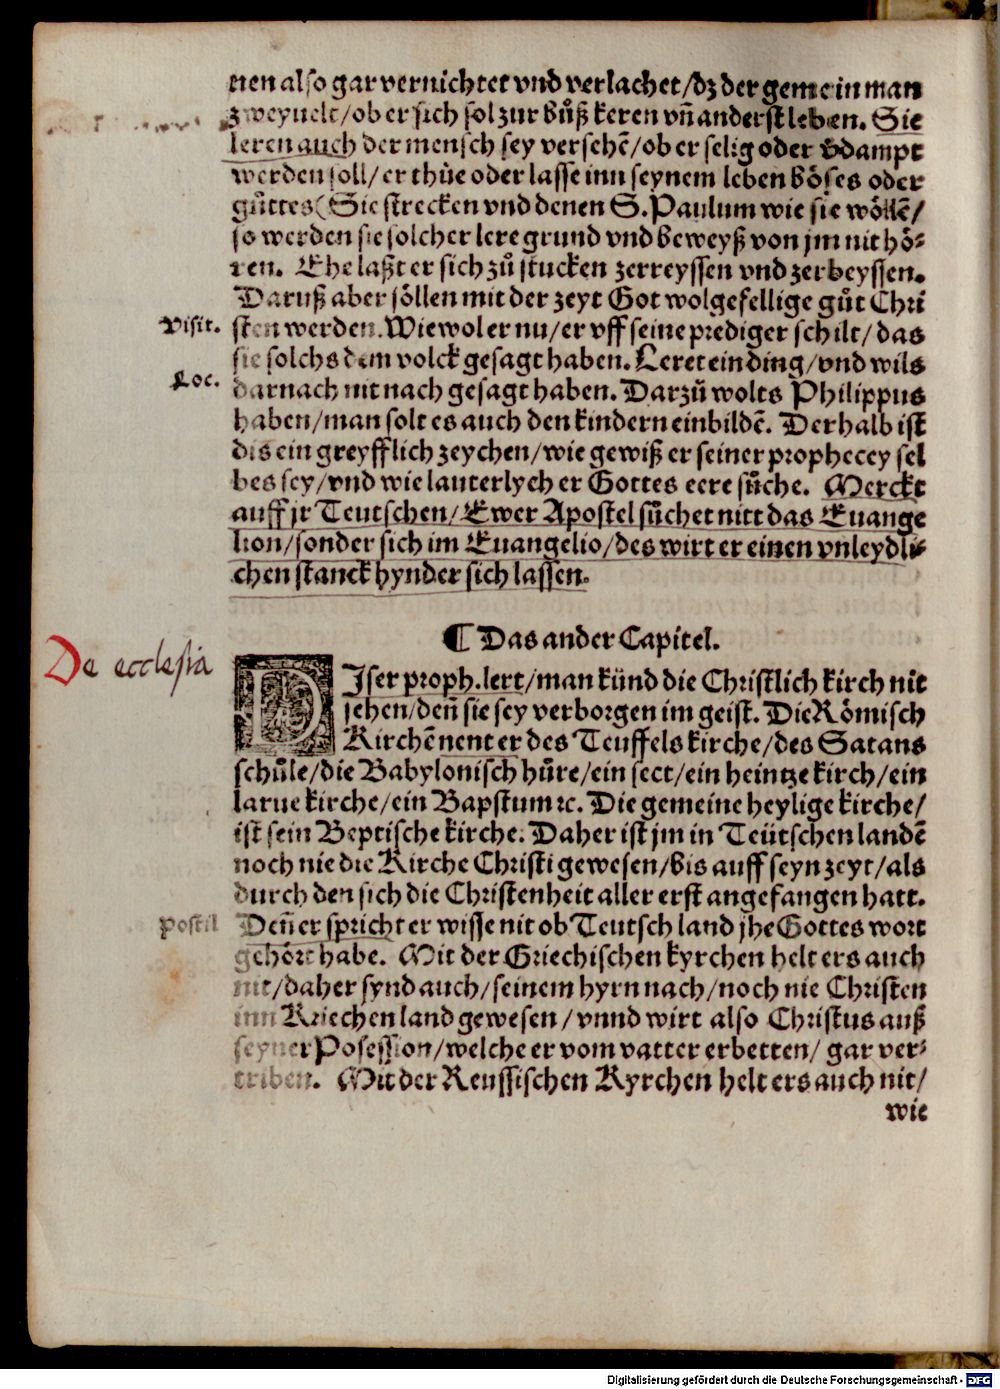 nen also gar vernichtet vnd verlachet/dz der gemein man
zweyuelt/ob er sich sol zur bůß keren vñ anderst leben. Sie
leren auch der mensch sey versehẽ/ob er selig oder v̄dampt
werden soll/er thüe oder lasse inn seynem leben böses oder
gůttes(Sie strecken vnd denen S. Paulum wie sie wöllẽ/
so werden sie solcher lere grund vnd beweyß von jm nit hö⸗
ren. Ehe laßt er sich zů stucken zerreyssen vnd zerbeyssen.
Daruß aber söllen mit der zeyt Got wolgefellige gůt Chri
Visit.
sten werden. Wiewol er nu/er vff seine prediger schilt/das
sie solchs dem volck gesagt haben. Leret ein ding/vnd wils
Loc.
darnach nit nach gesagt haben. Darzů wolts Philippus
haben/man solt es auch den kindern einbildẽ. Derhalb ist
dis ein greyfflich zeychen/wie gewiß er seiner prophecey sel
bes sey/vnd wie lauterlych er Gottes eere sůche. Merckt
auff jr Teutschen/Ewer Apostel sůchet nitt das Euange
lion/sonder sich im Euangelio/des wirt er einen vnleydli⸗
chen stanck hynder sich lassen.
¶ Das ander Capitel.
De ecclesia
DIser proph. lert/man künd die Christlich kirch nit
sehen/deñ sie sey verborgen im geist. Die Römisch
Kirchẽ nent er des Teuffels kirche/des Satans
schůle/die Babylonisch hůre/ein sect/ein heintze kirch/ein
larue kirche/ein Bapstum ꝛc. Die gemeine heylige kirche/
ist sein Beptische kirche. Daher ist jm in Teütschen landẽ
noch nie die Kirche Christi gewesen/bis auff seyn zeyt/als
durch den sich die Christenheit aller erst angefangen hatt.
Postil
Deñ er spricht er wisse nit ob Teutsch land jhe Gottes wort
gehört habe. Mit der Griechischen kyrchen helt ers auch
nit/daher synd auch/seinem hyrn nach/noch nie Christen
inn Kriechen land gewesen/vnnd wirt also Christus auß
seyner Posession/welche er vom vatter erbetten/gar ver⸗
triben. Mit der Reussischen Kyrchen helt ers auch nit/
wie
Digitalisierung gefördert durch die Deutsche Forschungsgemeinschaft - DFG